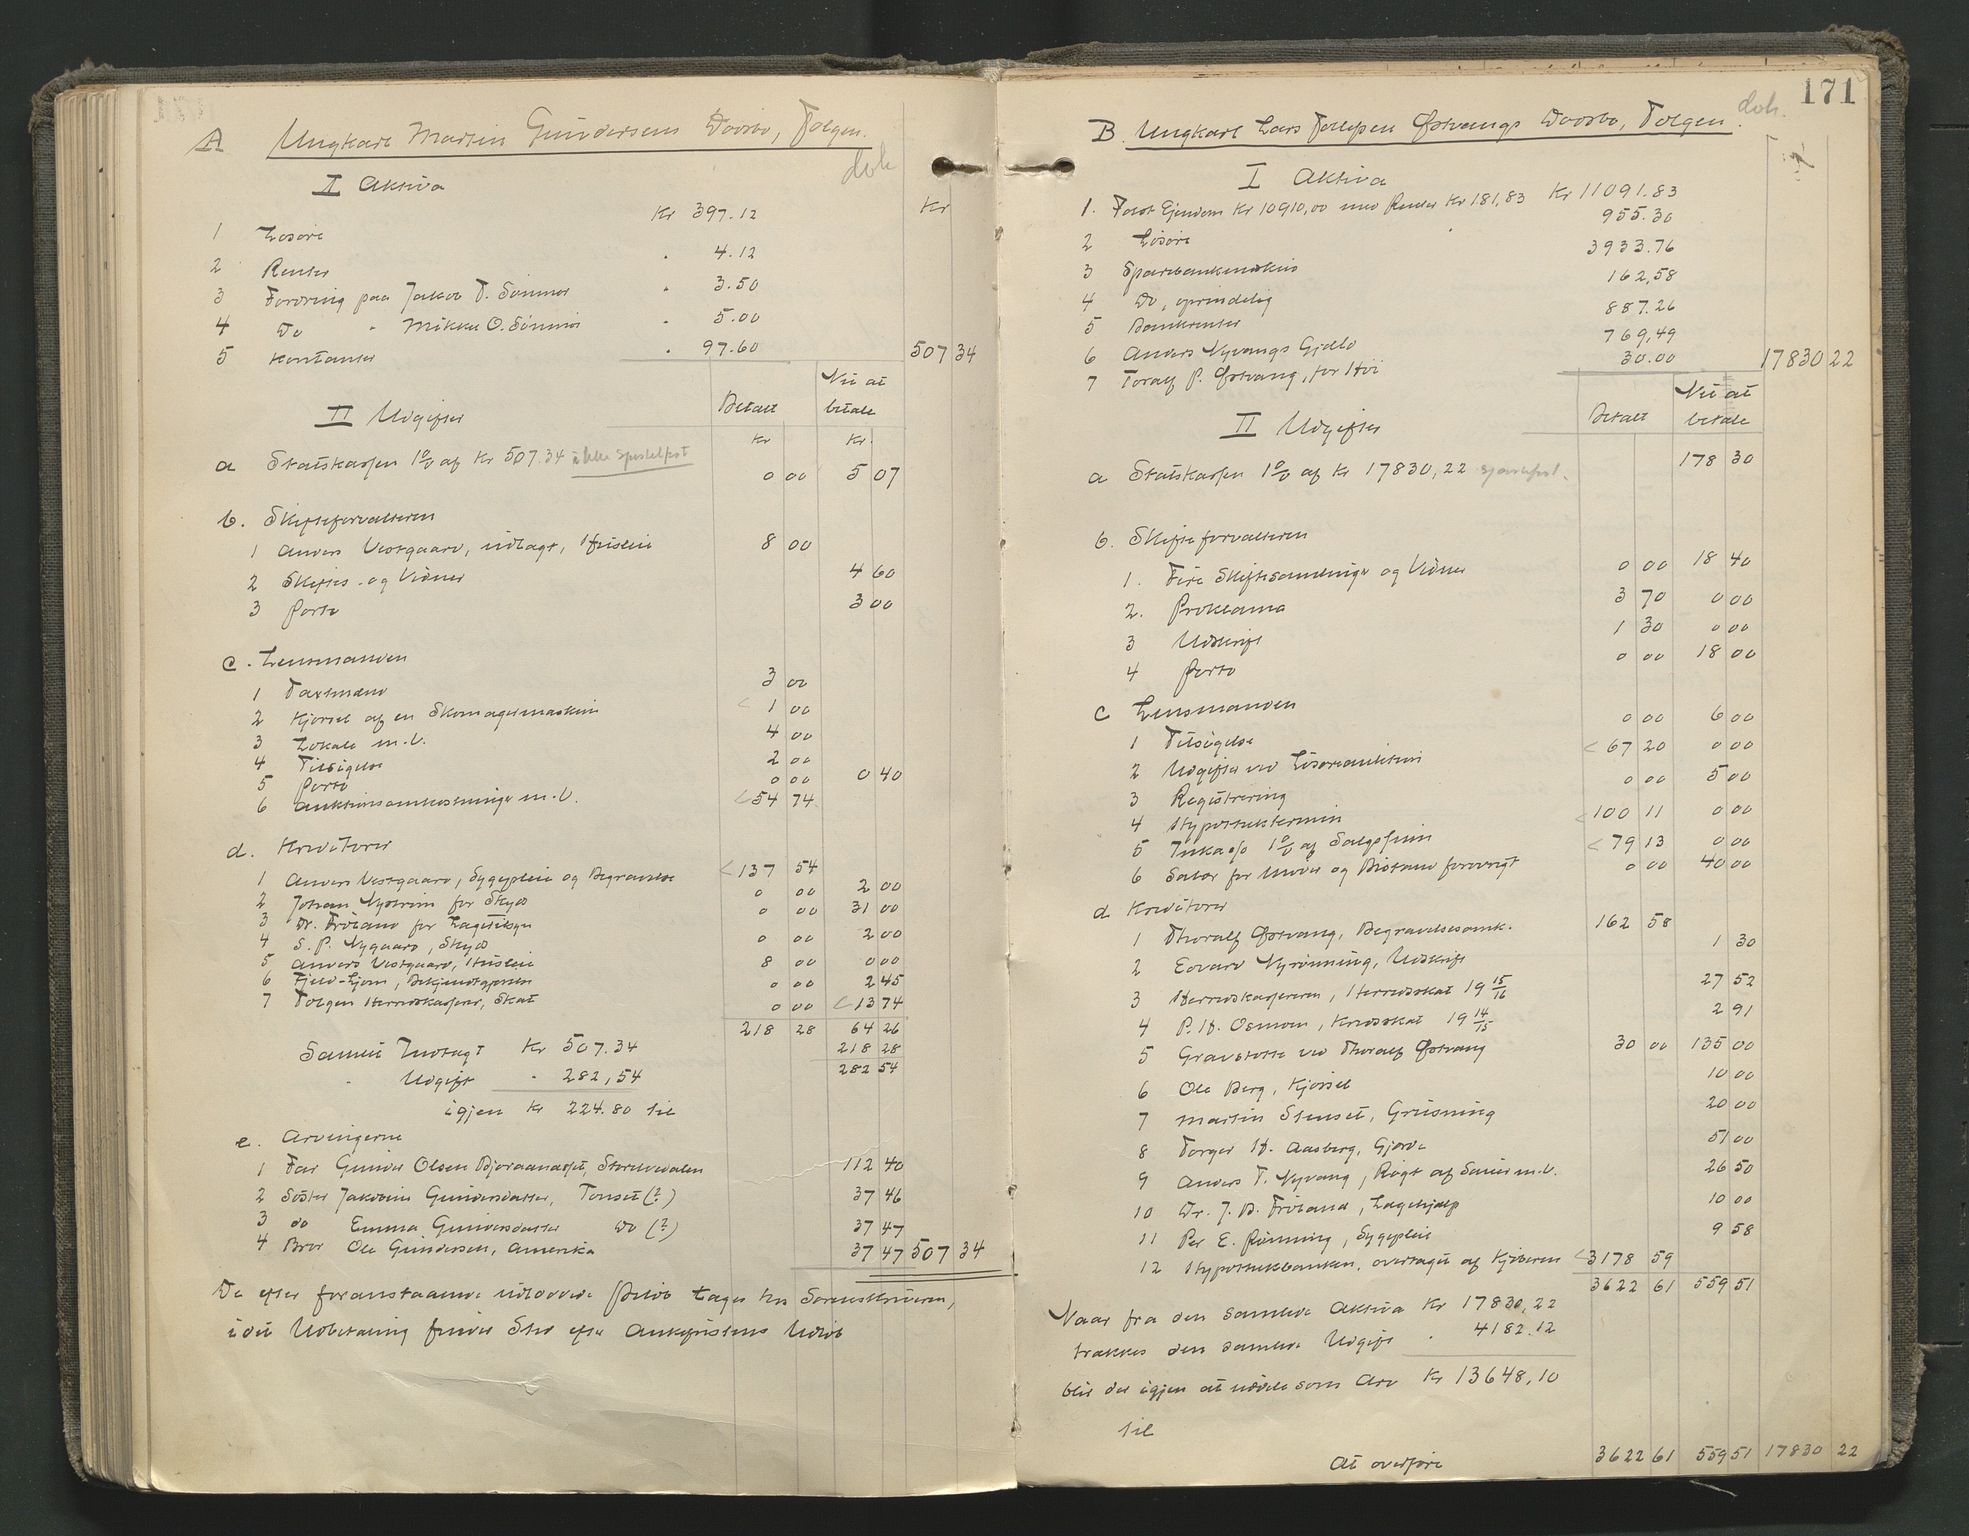 A Ungkarl Martin Gundersens Dødsbo, Tolgen.
doh
I Aktiva
Kr
1 Løsøre Kr 397.12
2 Renter " 4.12
3 Fordring paa Jakob T. Sømmør " 3.50
4 Do " Mikkel O. Sømmør " 5.00
5 Kontanter " 97.60 507 34
II Udgifter Betalt Nu at betale
Kr Kr.
a Statskassen 1% af Kr 507.34 ikke Sportelfrit 0 00 5 07
b. Skifteforvalteren
1 Anders Vestgaard, udlagt, Husleie 8 00
2 Skiftes- og Vidner 4 60
3 Porto 3 00
c. Lensmanden
1 Taxtmænd 3 00
2 Kjørsel af en Skomagermaskin < 1 00
3 Lokale m.v. 4 00
4 Tilsigelse 2 00
5 Porto 0 00 0 40
6 Auktionsomkostninger m.v. < 54 74
d. Kreditorer
1 Anders Vestgaard, Sygepleie og Begravelse < 137 54
2 Johan Nystrøm for Skyds 0 00 2 00
3 Dr. Frøland for Lægetilsyn 0 00 31 00
4 S. P. Nygaard, Skyds 0 00 2 00
5 Anders Vestgaard, Husleie 8 00 0 00
6 Fjeld-Ljom, Bekjendtgjørelse 0 00 2 45
7 Tolgen Herredskasserer, Skat 0 00 < 13 74
218 28 64 26
Samlet Indtægt Kr 507.34 218 28
" Udgift " 282,54 282 54
igjen Kr 224.80 til
e. Arvingerne
1 Far Gunder Olsen Bjøraanæset, Storelvedalen 112 40
2 Søster Jakobine Gundersdatter, Tønset (?) 37 46
3 do Emma Gundersdatter Do (?) 37 47
4 Bror Ole Gundersen, Amerika 37 47 507 34
De efter foranstaaende udlodde Beløb tages hos Sorenskriveren,
idet Udbetaling finder Sted efter Ankefristens Udløb
171
doh.
B. Ungkarl Lars Tollefsen Østvangs Dødsbo, Tolgen.
I Aktiva
1. Fast Eiendom Kr 10910,00 med Renter Kr 181,83 Kr 11091.83
2 Løsøre 955.30
3 Sparebankinskud 3933.76
4 Do, oprindelig 162,58
5 Bankrenter 887.26
6 Anders Nyvangs Gjæld 769,49
7 Toralf P. Østvang, for Høi 30.00 17830 22
II Udgifter Betalt Nu at betale
a Statskassen 1% af Kr 17830,22 178 30
b. Skifteforvalteren
1. Fire Skiftesamlinger og Vidner 0 00 18 40
2. Proklama 3 70 0 00
3 Udskrift 1 30 0 00
4 Porto 0 00 18 00
c Lensmanden
1 Tilsigelse 0 00 6 00
2 Udgifter ved Løsøreauktion < 67 20 0 00
3 Registrering 0 00 5 00
4 Hypothektermin < 100 11 0 00
5 Inkasso 1% af Salgssum < 79 13 0 00
6 Salær for Møder og Bistand forøvrigt 0 00 40 00
d Kreditorer
1 Thoralf Østvang, Begravelsesomk. 162 58
2 Edvard Nyrønning, Udskrift 1 30
3 Herredskassereren, Herredsskat 19 15/16 27 52
4 P. H. Osmoen, Kredsskat 19 14/15 2 91
5 Gravstøtte ved Thoralf Østvang 30 00 135 00
6 Ole Berg, Kjørsel 10 00
7 Martin Stenset, Grusning 20 00
8 Torger H. Aasberg, Gjørde 51 00
9 Anders T. Nyvang, Røgt af Sauer m.v. 26 50
10 Dr. J. B. Frøland, Lægehjælp 10 00
11 Per E. Rønning, Sygepleie 9 58
12 Hypothekbanken, overtaget af Kjøberen < 3178 59
3622 61 559 51
Naar fra den samlede Aktiva Kr 17830,22
trækkes den samlede Udgift " 4182.12
blir det igjen at uddele som Arv Kr 13648,10
til
At overføre 3622 61 559 51 17830 22